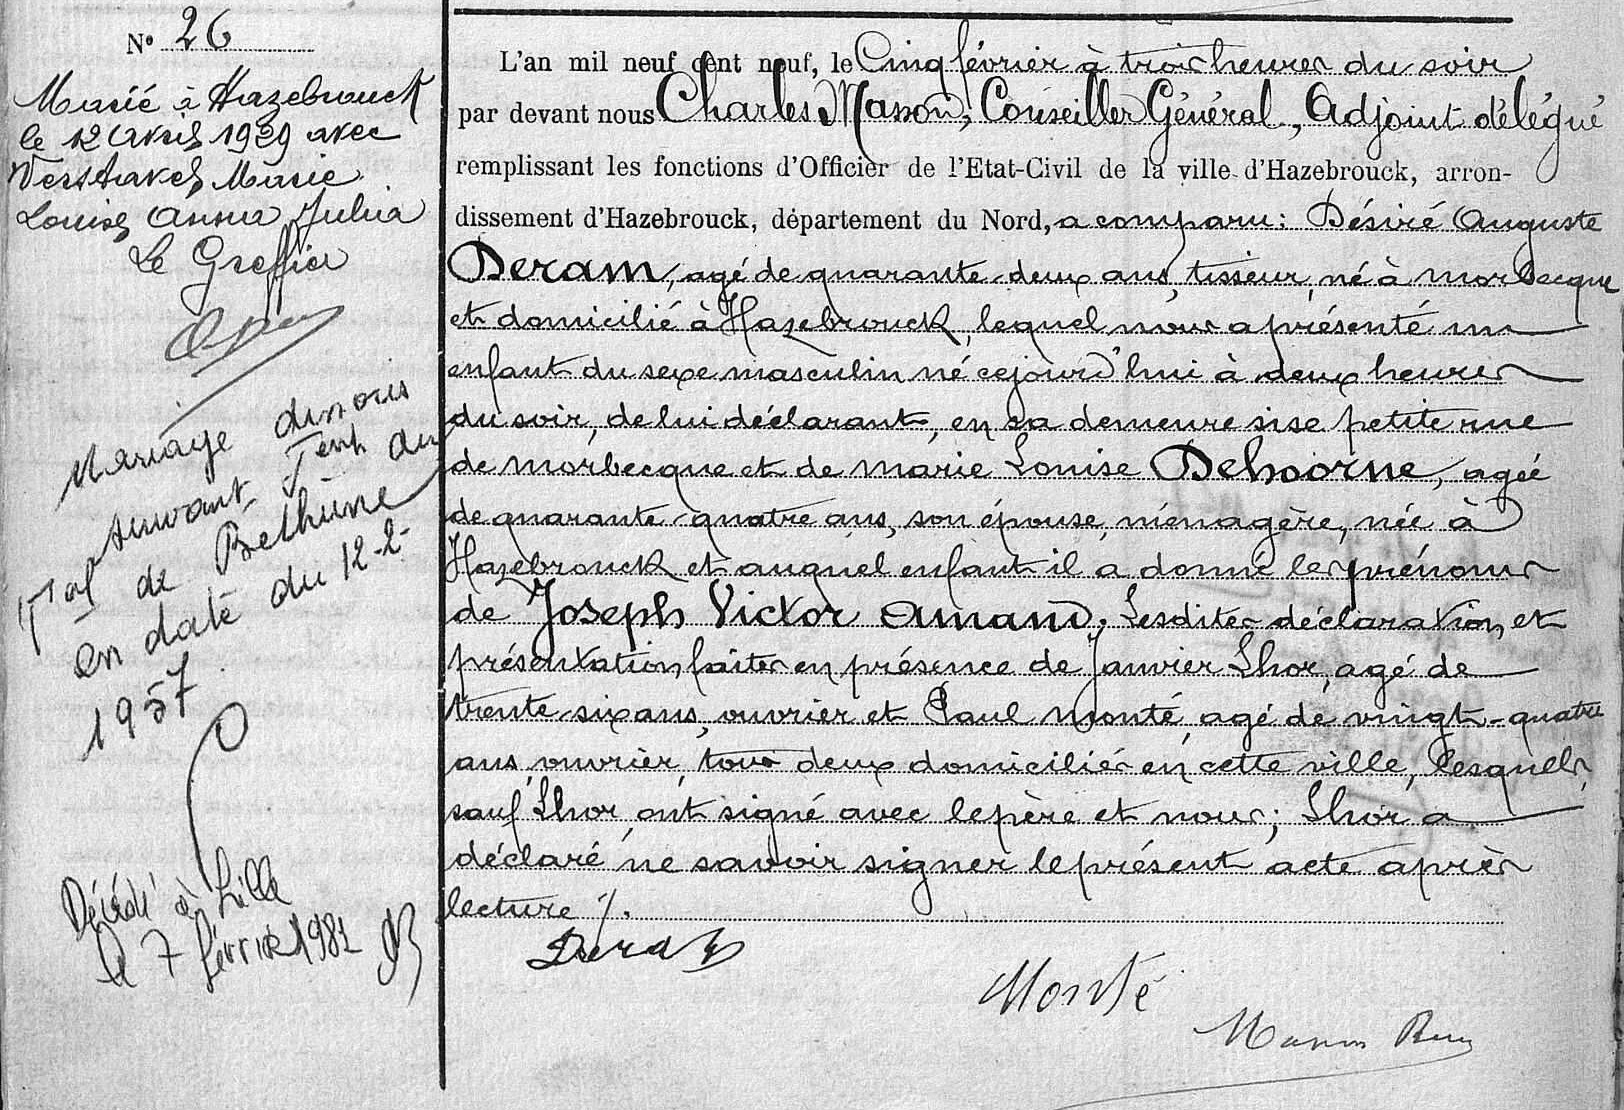 N° 26
Marié à Hazebrouck
le 12 avril 1929 avec
Verstavel Marie
Louise Anna Julia
Le Greffier
Mariage dissous
suivant Jugt du
Tal de Béthune
en date du 12-2-
1957
Décédé à Lille
le 7 février 1982
L'an mil neuf cent neuf, le Cinq février à trois heures du soir
par devant nous Charles Masson, Conseiller Général, Adjoint délégué
remplissant les fonctions d'Officier de l'Etat-Civil de la ville d'Hazebrouck, arron-
dissement d'Hazebrouck, département du Nord, a comparu: Désiré Auguste
Deram, agé de quarante-deux ans, tisseur, né à Morbecque
et domicilié à Hazebrouck, lequel nous a présenté un
enfant du sexe masculin né cejourd'hui à deux heures
du soir, de lui déclarant, en sa demeure sise petite rue
de Morbecque et de Marie Louise Dehoorne, agée
de quarante-quatre ans, son épouse, ménagère, née à
Hazebrouck et auquel enfant il a donné les prénoms
de Joseph Victor Amand. Lesdites déclaration et
présentation faites en présence de Janvier Lhor, agé de
trente six ans, ouvrier et Paul Monté, agé de vingt-quatre
ans, ouvrier, tous deux domiciliés en cette ville, lesquels,
sauf Lhor, ont signé avec le père et nous; Lhor a
déclaré ne savoir signer le présent acte après
lecture ⁒.
Deram
Monté
Masson